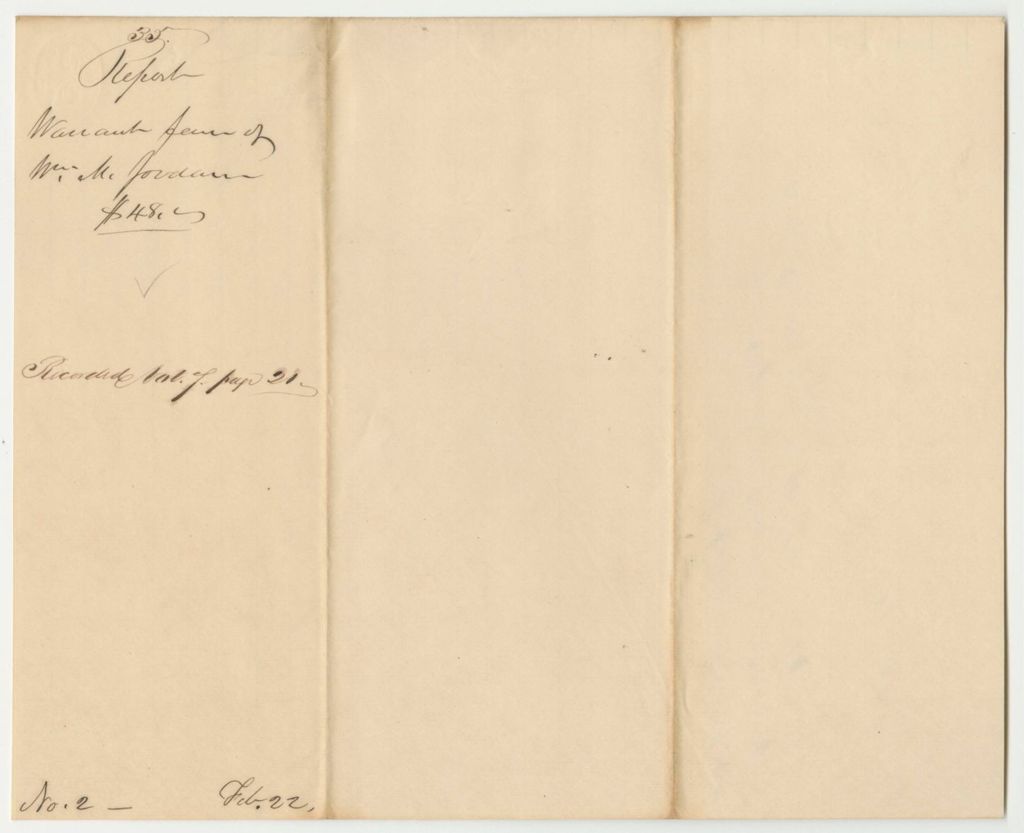 35.
Report
Warrant favr of
Wm. M. Jordan
$48.
Recorded Vol. 7. page 21
No. 2 —
Feb. 22.